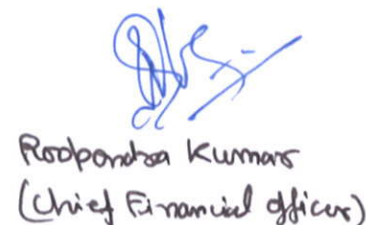 Roopendra Kumar
(Chief Financial Officer)